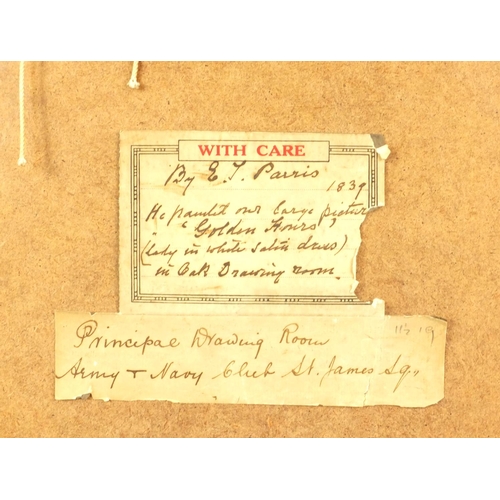 WITH CARE
By E. T. Parris
1839
He painted our large picture
"Golden Hours"
(lady in white satin dress)
in Oak Drawing room.
Principal Drawing Room
Army & Navy Club St. James Sq.,